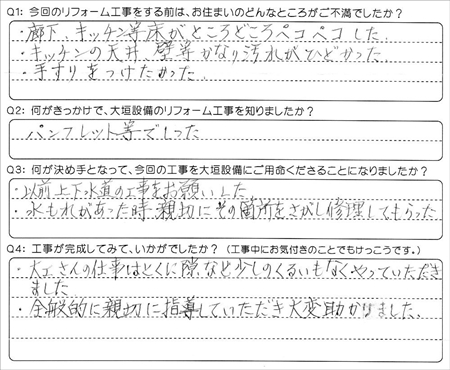 Q1: 今回のリフォーム工事をする前は、お住まいのどんなところがご不満でしたか?
・廊下、キッチン等床がところどころペコペコした。
・キッチンの天井、壁等かなり汚れがひどかった。
・手すりをつけたかった
Q2: 何がきっかけで、大垣設備のリフォーム工事を知りましたか?
・パンフレット等でしった
Q3: 何が決め手となって、今回の工事を大垣設備にご用命くださることになりましたか?
・以前上下水道の工事をお願いした
・水もれがあった時親切にその箇所をさがし修理してもらった
Q4: 工事が完成してみて、いかがでしたか? (工事中にお気付きのことでもけっこうです。)
・大工さんの仕事はとくに隙など少しのくるいもなくやっていただき
ました
・全般的に親切に指導していただき大変助かりました。